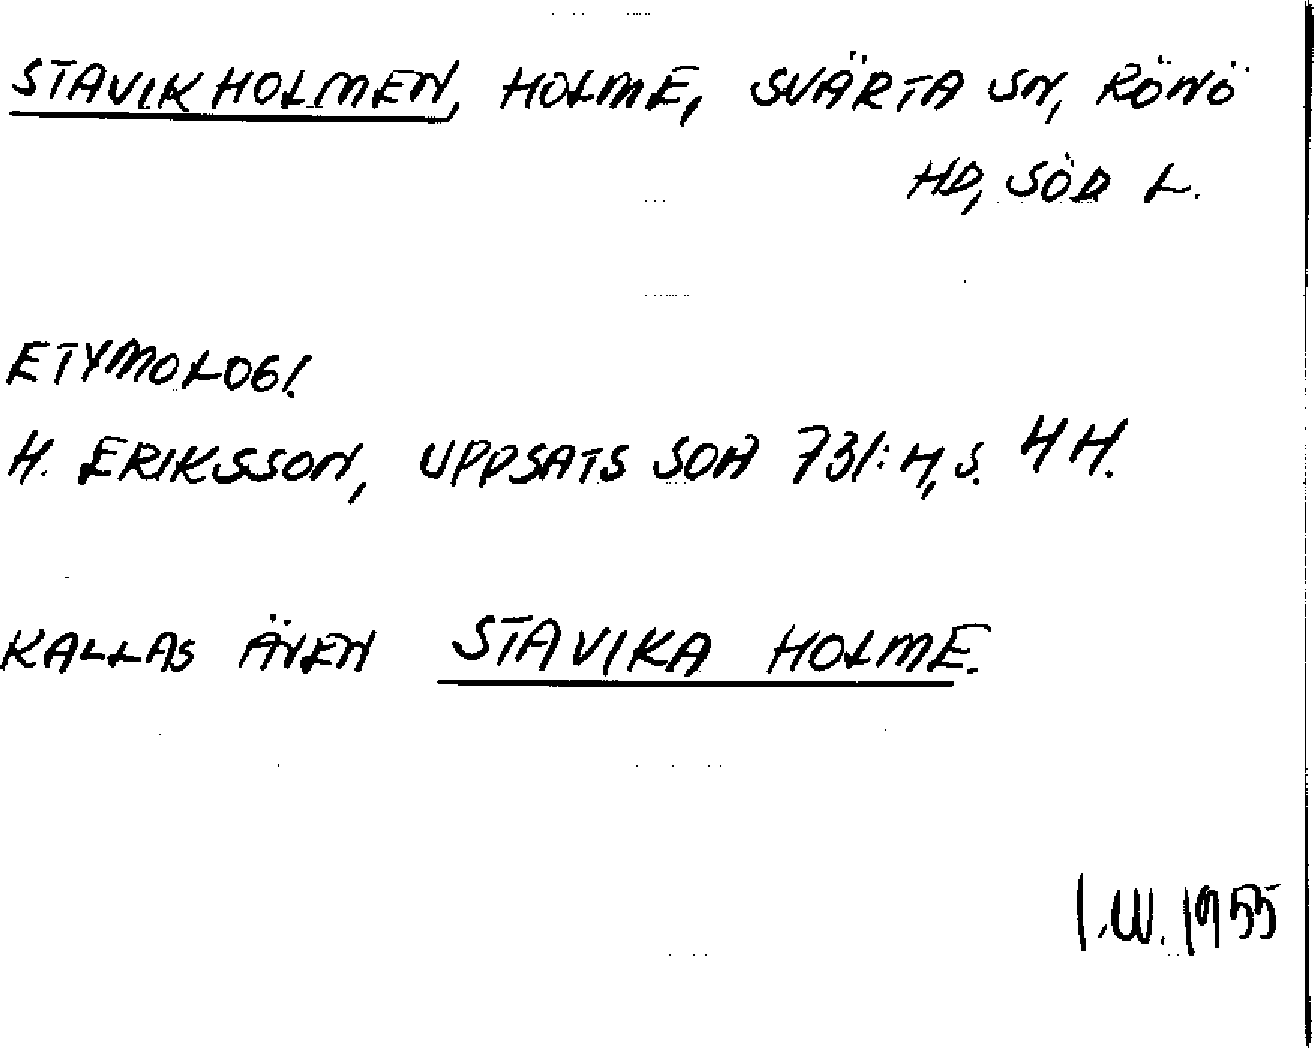 STAVIKHOLMEN, HOLME, SVÄRTA SN, RÖNÖ
HD, SÖD L.
ETYMOLOGI.
H. ERIKSSON, UPPSATS SOA 731:4, S. 44.
KALLAS ÄVEN STAVIKA HOLME.
I.W. 1955